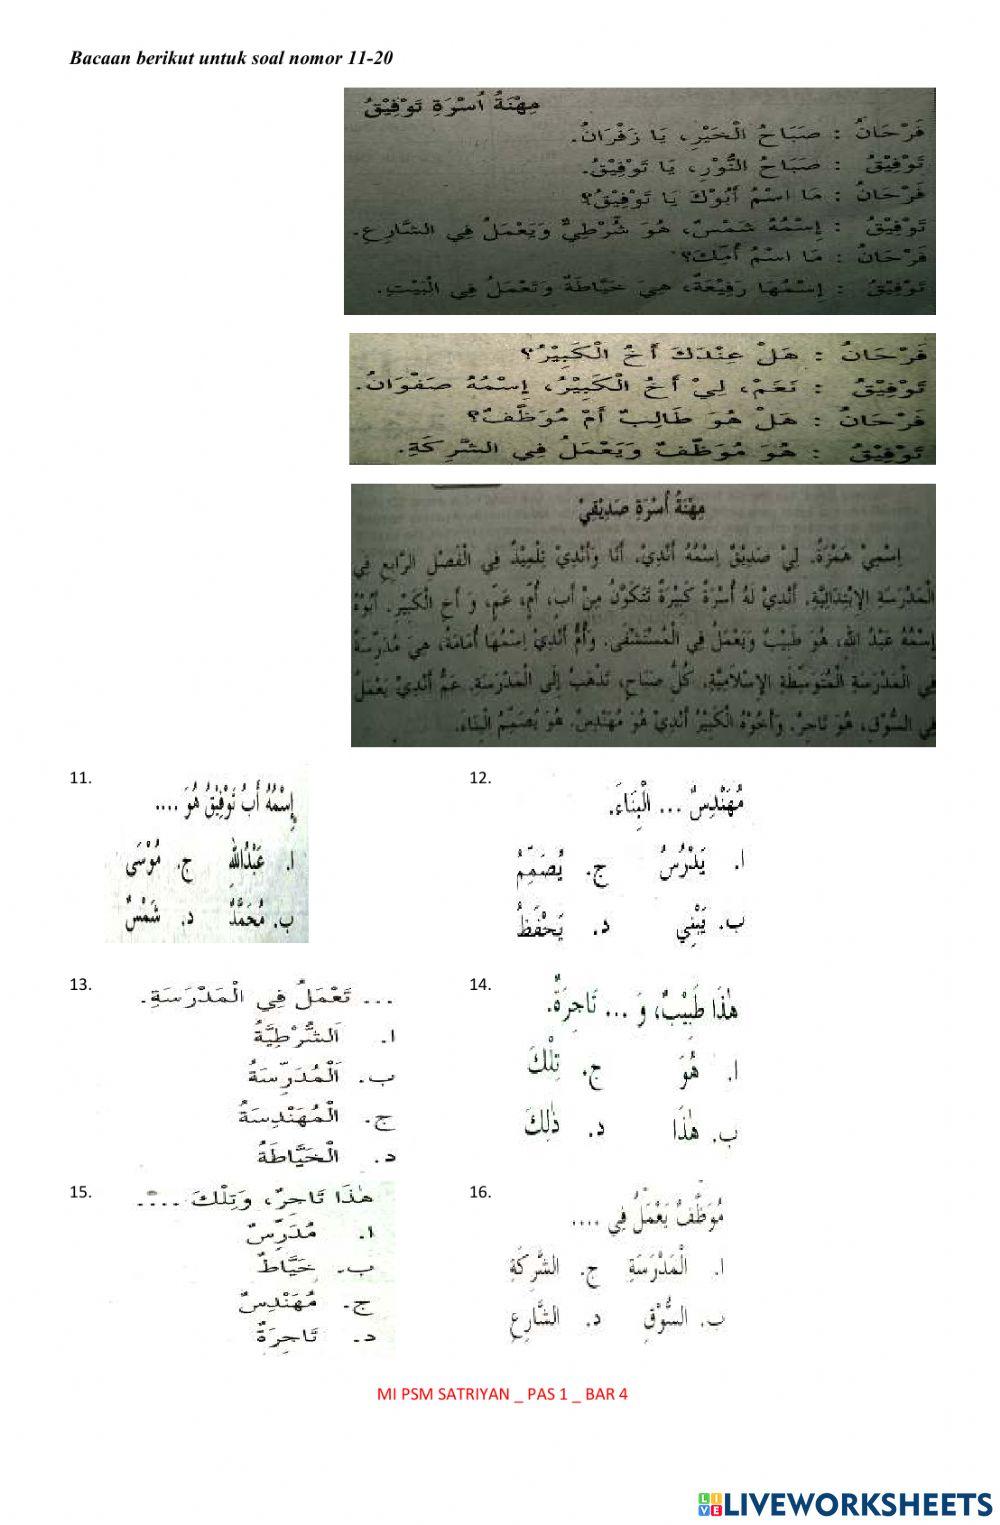 Bacaan berikut untuk soal nomor 11-20
مِهْنَةُ أُسْرَةِ تَوْفِيْقُ
فَرْحَانُ : صَبَاحُ الْخَيْرِ، يَا زَفْرَانُ.
تَوْفِيْقُ : صَبَاحُ النُّوْرِ، يَا تَوْفِيْقُ.
فَرْحَانُ : مَا اسْمُ أَبُوْكَ يَا تَوْفِيْقُ؟
تَوْفِيْقُ : إِسْمُهُ شَمْسٌ، هُوَ شُرْطِيٌّ وَيَعْمَلُ فِي الشَّارِعِ.
فَرْحَانُ : مَا اسْمُ أُمِّكَ؟
تَوْفِيْقُ : إِسْمُهَا رَفِيْعَةٌ، هِيَ خَيَّاطَةٌ وَتَعْمَلُ فِي الْبَيْتِ.
فَرْحَانُ : هَلْ عِنْدَكَ أَخُ الْكَبِيْرُ؟
تَوْفِيْقُ : نَعَمْ، لِيْ أَخُ الْكَبِيْرُ، إِسْمُهُ صَفْوَانُ.
فَرْحَانُ : هَلْ هُوَ طَالِبٌ أَمْ مُوَظَّفٌ؟
تَوْفِيْقُ : هُوَ مُوَظَّفٌ وَيَعْمَلُ فِي الشَّرِكَةِ.
مِهْنَةُ أُسْرَةِ صَدِيْقِيْ
اِسْمِيْ حَمْزَةُ. لِيْ صَدِيْقٌ اِسْمُهُ أَنْدِيْ. أَنَا وَأَنْدِيْ تِلْمِيْذٌ فِي الْفَصْلِ الرَّابِعِ فِي
الْمَدْرَسَةِ الإِبْتِدَائِيَّةِ. أَنْدِيْ لَهُ أُسْرَةٌ كَبِيْرَةٌ تَتَكَوَّنُ مِنْ أَبٍ، أُمٍّ، عَمٍّ، وَ أَخِ الْكَبِيْرِ. أَبُوْهُ
إِسْمُهُ عَبْدُ اللهِ، هُوَ طَبِيْبٌ وَيَعْمَلُ فِي الْمُسْتَشْفَى. وَأُمُّ أَنْدِيْ إِسْمُهَا أُمَامَةُ، هِيَ مُدَرِّسَةٌ
فِي الْمَدْرَسَةِ الْمُتَوَسِّطَةِ الإِسْلَامِيَّةِ. كُلَّ صَبَاحٍ، تَذْهَبُ إِلَى الْمَدْرَسَةِ. عَمُّ أَنْدِيْ يَعْمَلُ
فِي السُّوْقِ، هُوَ تَاجِرٌ. وَأَخُوْهُ الْكَبِيْرُ أَنْدِيْ هُوَ مُهَنْدِسٌ. هُوَ يُصَمِّمُ الْبِنَاءَ.
11.
إِسْمُهُ أَبُ تَوْفِيْقُ هُوَ ....
ا. عَبْدُاللهِ ج. مُوْسَى
ب. مُحَمَّدٌ د. شَمْسٌ
12.
مُهَنْدِسٌ ... الْبِنَاءَ.
ا. يَدْرُسُ ج. يُصَمِّمُ
ب. يَبْنِي د. يَحْفَظُ
13.
... تَعْمَلُ فِي الْمَدْرَسَةِ.
ا. اَلشُّرْطِيَّةُ
ب. اَلْمُدَرِّسَةُ
ج. الْمُهَنْدِسَةُ
د. الْخَيَّاطَةُ
14.
هٰذَا طَبِيْبٌ، وَ ... تَاجِرَةٌ.
ا. هُوَ ج. تِلْكَ
ب. هٰذَا د. ذٰلِكَ
15.
هٰذَا تَاجِرٌ، وَتِلْكَ ....
ا. مُدَرِّسٌ
ب. خَيَّاطٌ
ج. مُهَنْدِسٌ
د. تَاجِرَةٌ
16.
مُوَظَّفٌ يَعْمَلُ فِي ....
ا. الْمَدْرَسَةِ ج. الشَّرِكَةِ
ب. السُّوْقِ د. الشَّارِعِ
MI PSM SATRIYAN _ PAS 1 _ BAR 4
LIVE LIVEWORKSHEETS